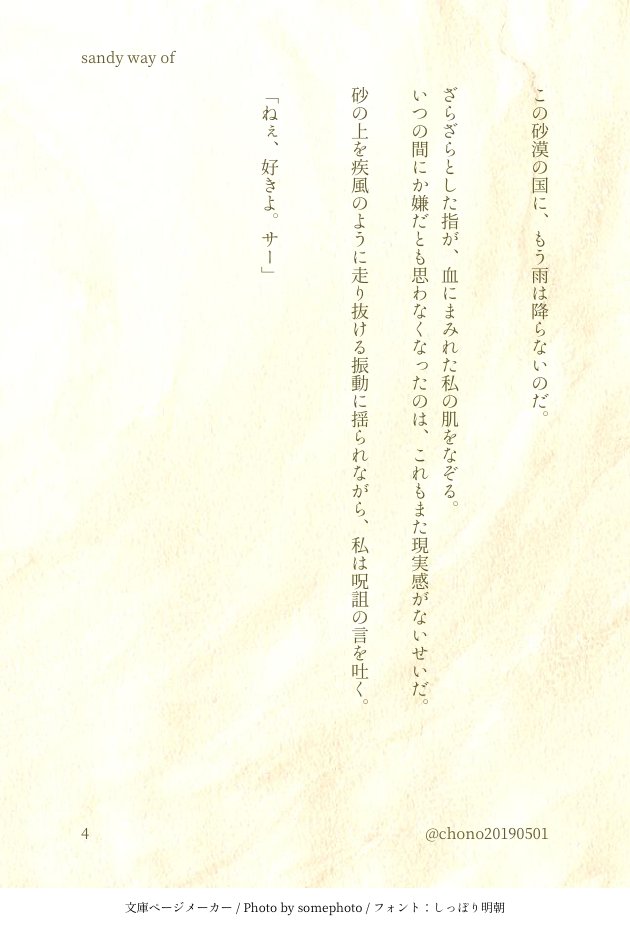 sandy way of
この砂漠の国に、もう雨は降らないのだ。
ざらざらとした指が、血にまみれた私の肌をなぞる。
いつの間にか嫌だとも思わなくなったのは、これもまた現実感がないせいだ。
砂の上を疾風のように走り抜ける振動に揺られながら、私は呪詛の言を吐く。
「ねぇ、好きよ。サー」
4
@chono20190501
文庫ページメーカー / Photo by somephoto / フォント：しっぽり明朝